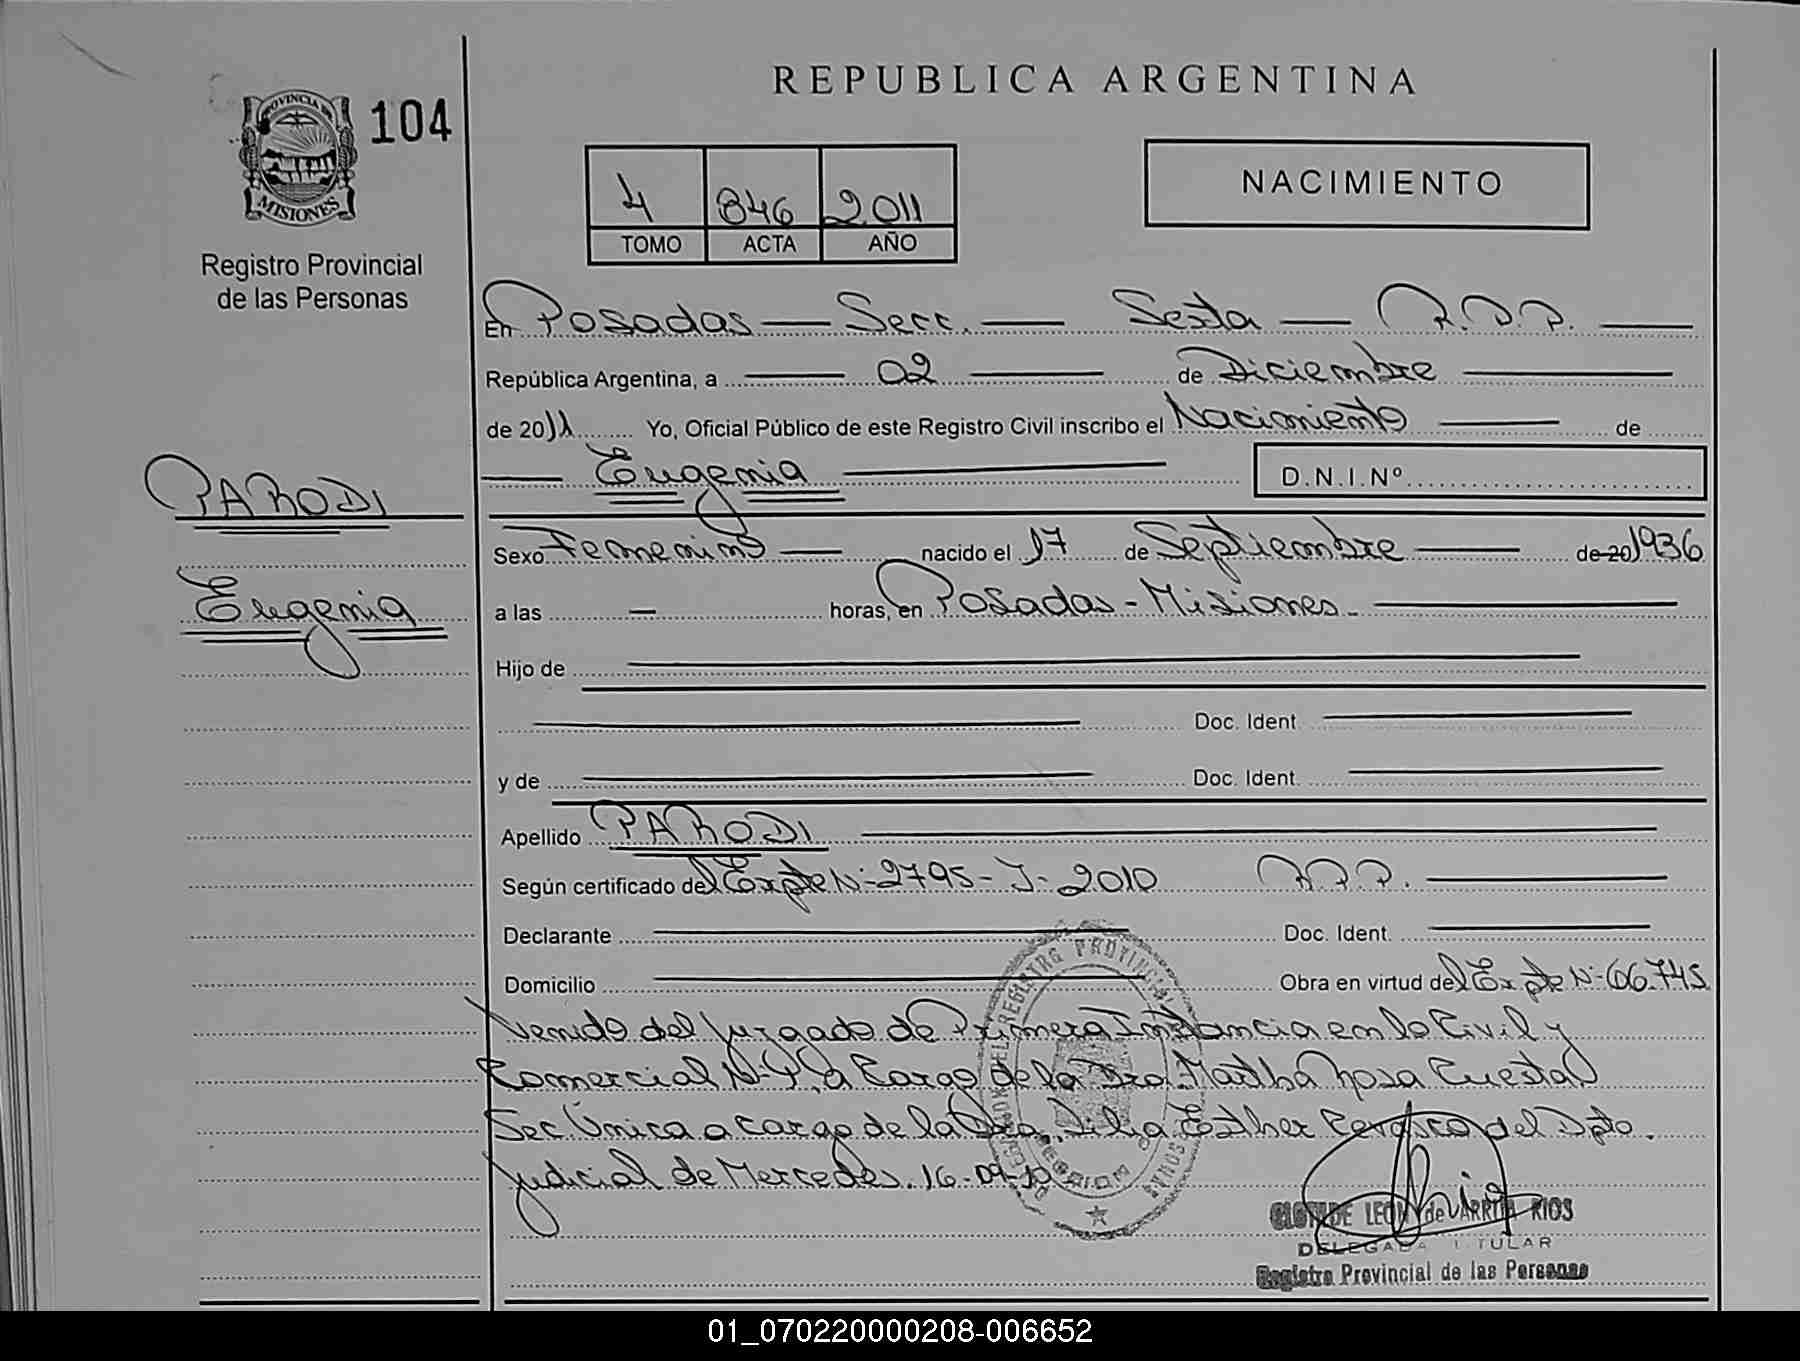 REPUBLICA ARGENTINA
PROVINCIA DE
MISIONES
104
Registro Provincial
de las Personas
4 846 2011
TOMO ACTA AÑO
NACIMIENTO
En Posadas — Secc. — Sexta — R.P.P. —
República Argentina, a — 02 — de Diciembre —
de 2011 Yo, Oficial Público de este Registro Civil inscribo el Nacimiento — de
— Eugenia — D.N.I.Nº
PARODI
Eugenia
Sexo Femenino — nacido el 17 de Septiembre — de 20 1936
a las — horas, en Posadas - Misiones. —
Hijo de —
— Doc. Ident. —
y de — Doc. Ident. —
Apellido PARODI —
Según certificado del Expte Nº 2795-J-2010 R.P.P. —
Declarante — Doc. Ident. —
Domicilio — Obra en virtud del Expte Nº 66.745
venido del Juzgado de Primera Instancia en lo Civil y
Comercial Nº 9, a Cargo de la Dra. Martha Rosa Cuesta
Sec. Única a cargo de la Dra. Esther del Dpto.
Judicial de Mercedes. 16-09-10
REGISTRO PROVINCIAL
CLOTILDE LEON de ARRIA RIOS
DELEGADA TITULAR
Registro Provincial de las Personas
01_070220000208-006652